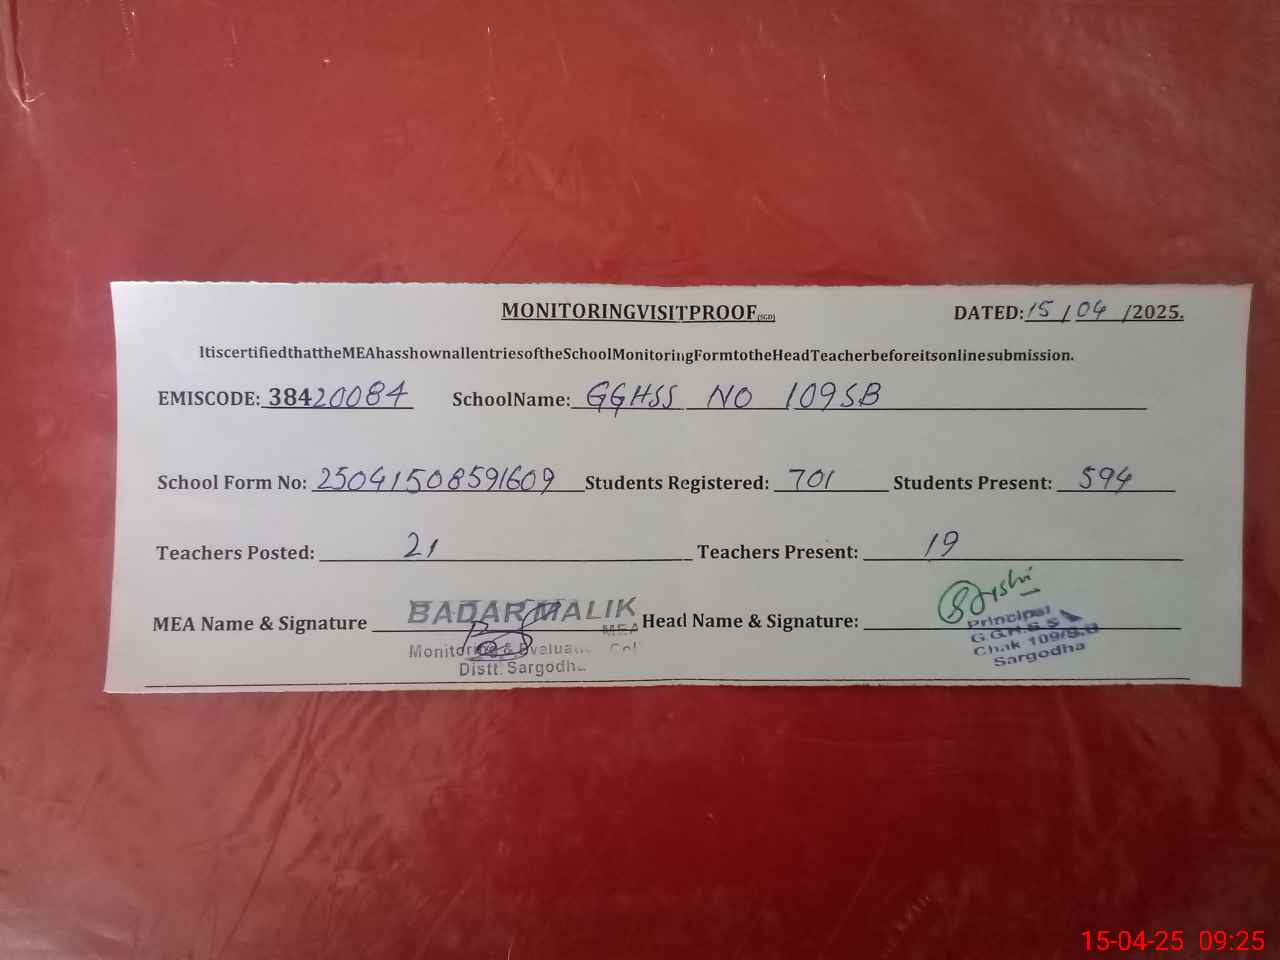 MONITORINGVISITPROOF(SGD) DATED: 15 / 04 /2025.
ItiscertifiedthattheMEAhasshownallentriesoftheSchoolMonitoringFormtotheHeadTeacherbeforeitsonlinesubmission.
EMISCODE: 38420084 SchoolName: GGHSS NO 109SB
School Form No: 25041508591609 Students Registered: 701 Students Present: 594
Teachers Posted: 21 Teachers Present: 19
MEA Name & Signature BADAR MALIK Head Name & Signature:
MEA
Monitoring & Evaluat
Distt. Sargodha
Principal
G.G.H.S.S
Chak 109/S.B
Sargodha
15-04-25 09:25